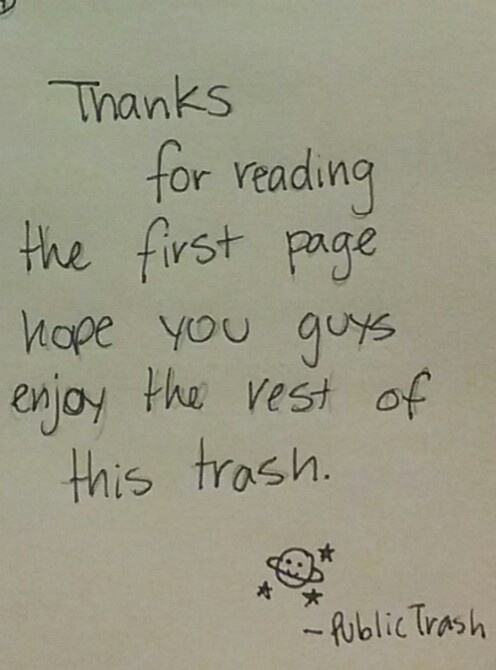 Thanks
for reading
the first page
hope you guys
enjoy the rest of
this trash.
- PublicTrash